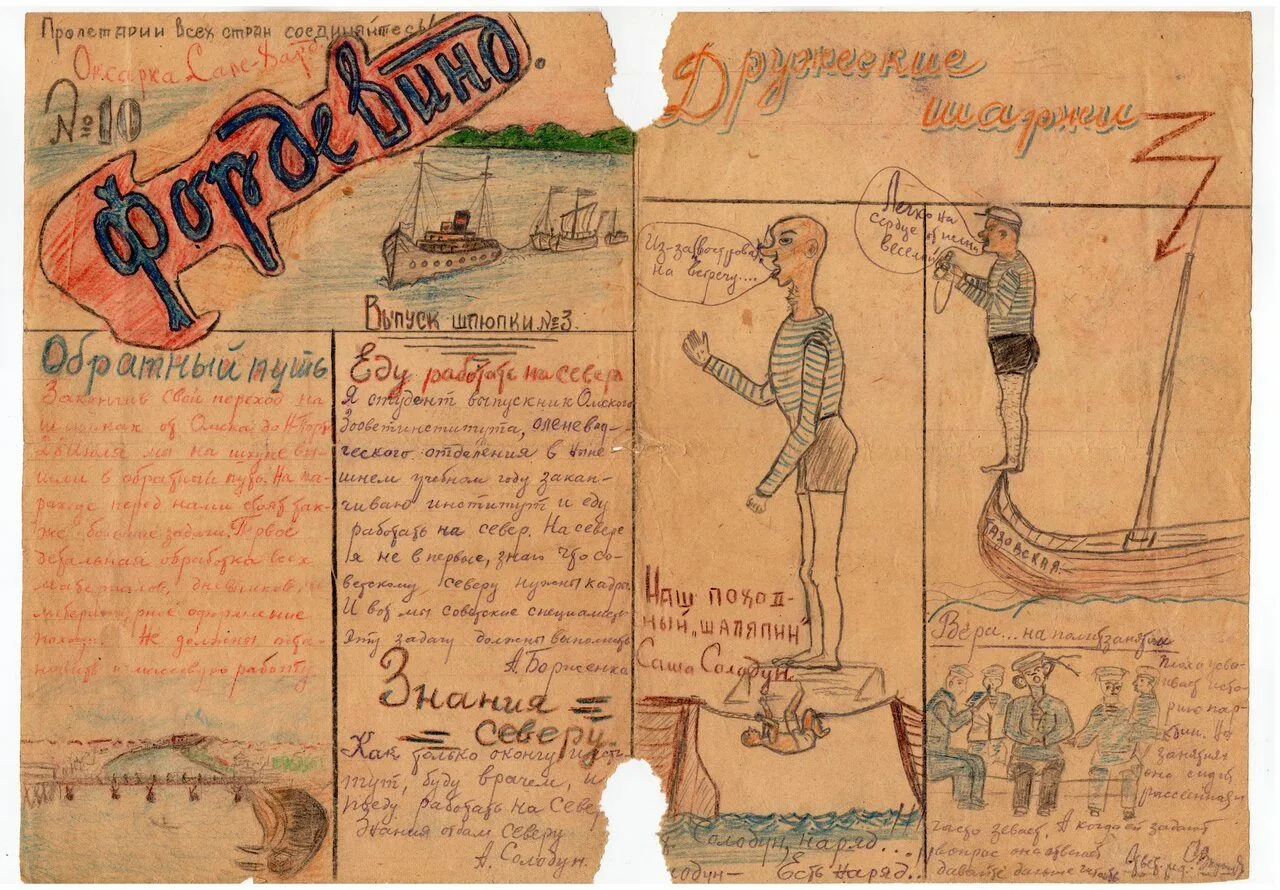 Пролетарии всех стран соединяйтесь!
Оксарка Сале-Хард
№10
Фордевинд.
Выпуск шлюпки №3.
Обратный путь
Закончив свой переход на
шлюпках от Омска до Н-Порт
28 июля мы на шхуне вы-
шли в обратный путь. На па-
рах уже перед нами стоят так-
же большие задачи. Первое
детальная обработка всех
материалов, дневников, и
литературное оформление
похода. Не должны
и массовую работу
Еду работать на север
Я студент выпускник Омского
Зооветинститута, оленевод-
ческого отделения в ныне
шнем учебном году закан-
чиваю институт и еду
работать на север. На севере
я не в первые, знаю что со-
ветскому северу нужны кадры
И вот мы советские специалисты
эту задачу должны выполнить
А. Борисенка
Знания
северу
Как только окончу инсти
тут, буду врачем, и
поеду работать на Север
Знания отдам северу
А. Солодун.
Дружеские
шаржи
Из-за острова
на встречу....
Легко на
сердце от песни
веселой
Наш поход-
ный "Шаляпин"
Саша Солодун.
Солодун, наряд...
Солодун— Есть наряд..
Азовская
Вера... на политзанятии
Плохо усва-
ивает исто-
рию пар-
тии. На
занятиях
она сидит
рассеянная
часто зевает. А когда ей задают
вопрос она отвечает
давайте дальше читать
Ответ. ред.